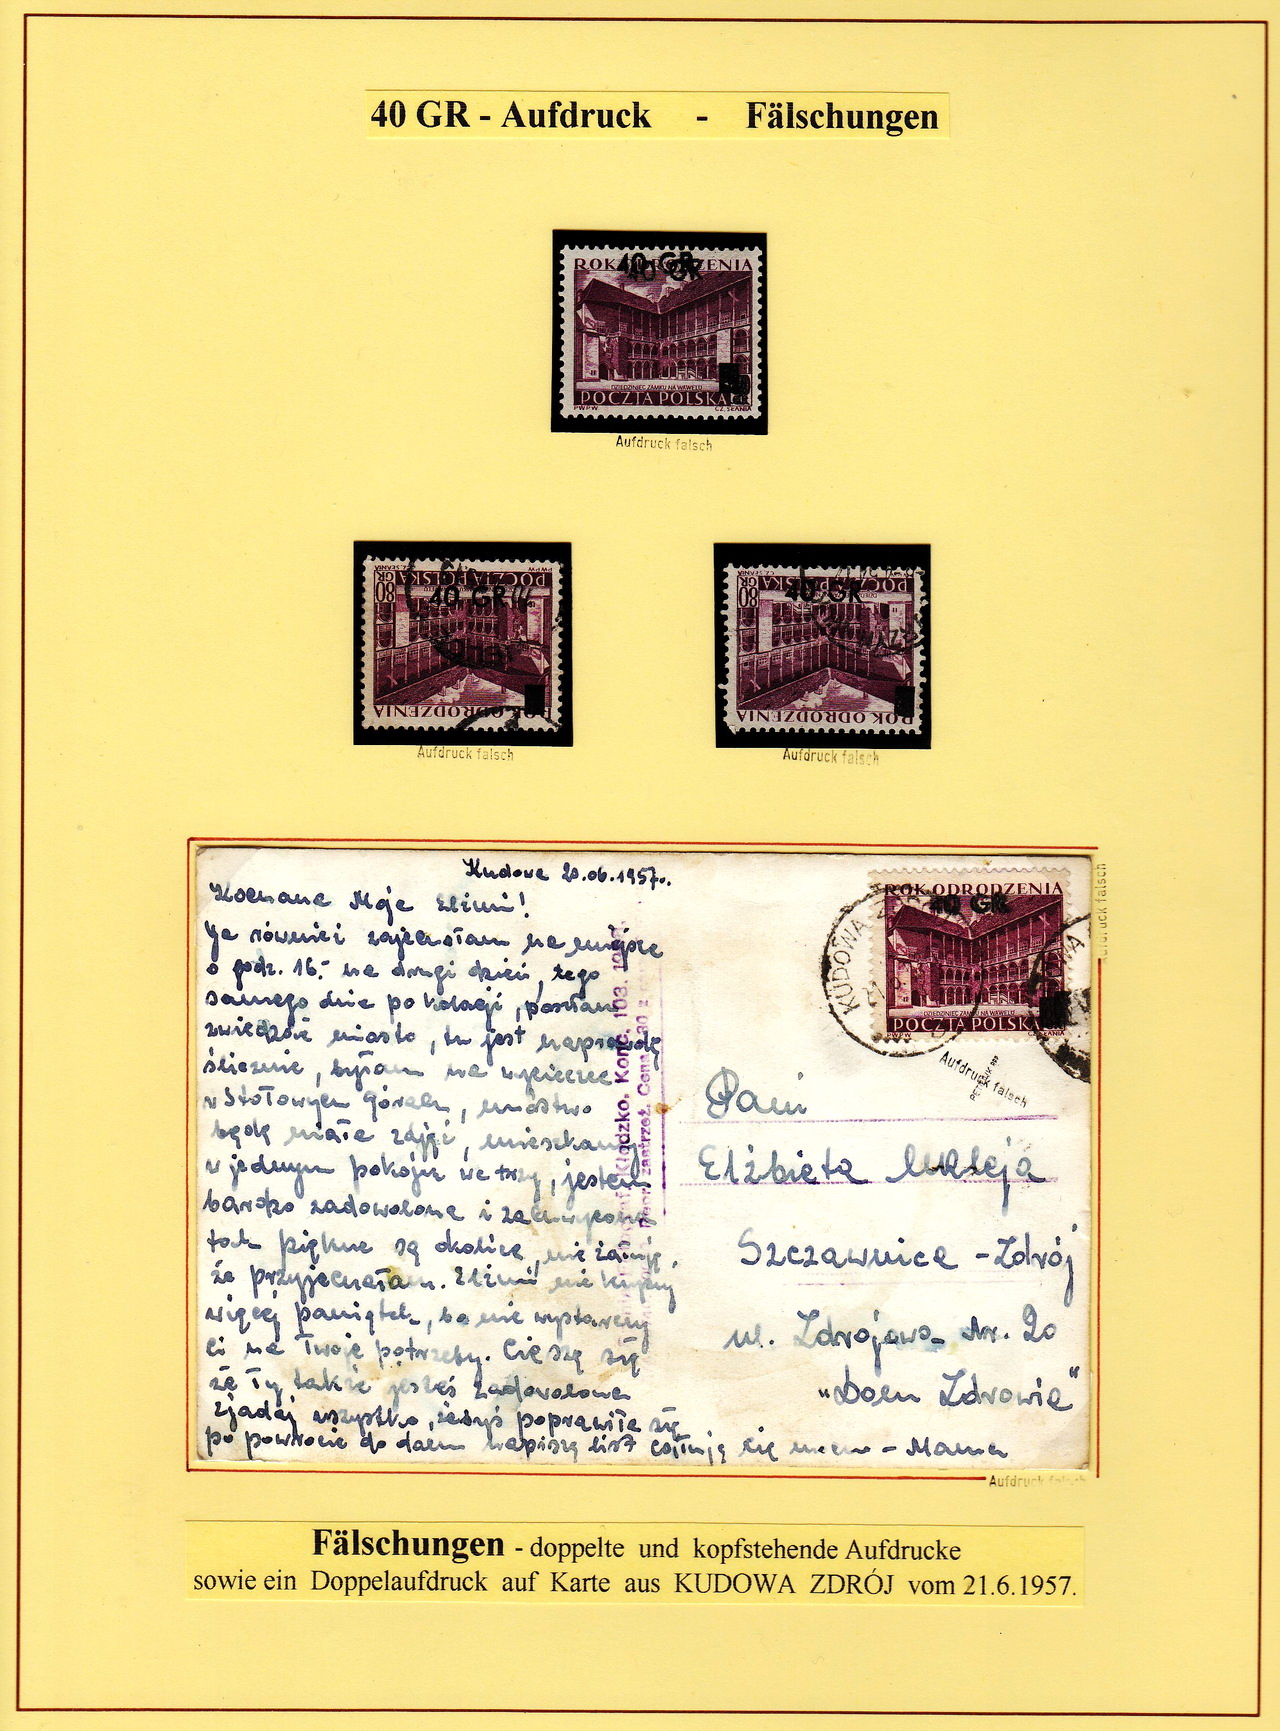 40 GR - Aufdruck - Fälschungen
ROK ODRODZENIA
40 GR
40 GR
DZIEDZINIEC ZAMKU NA WAWELU
POCZTA POLSKA
PWPW CZ. SŁANIA
Aufdruck falsch
PWPW CZ. SŁANIA
POCZTA POLSKA
80 GR
40 GR
ROK ODRODZENIA
Aufdruck falsch
PWPW CZ. SŁANIA
POCZTA POLSKA
80 GR
40 GR
ROK ODRODZENIA
Aufdruck falsch
Kudowa 20.06.1957.
Kochana Moja Elżuniu!
Ja również zajechałam na miejsce
o godz. 16.- na drugi dzień, tego
samego dnia po kolacji, poszłam
zwiedzić miasto, tu jest naprawdę
ślicznie, byłam na wycieczce
w Stołowych Górach,
będę miała zdjęć, mieszkamy
w jednym pokoju we trzy, jestem
bardzo zadowolona i zachwycona
tak piękne są okolice, nie żałuję,
że przyjechałam. Elżuniu nie kupuj
więcej pamiątek, bo nie wystarczy
Ci na Twoje potrzeby. Cieszę się
że Ty także jesteś zadowolona
zjadaj wszystko, żebyś poprawiła się
po powrocie do domu napiszę list całuję Cię mocno - Mama
Kłodzko. Konc. 103.
zastrzeż. Cena
ROK ODRODZENIA
40 GR
DZIEDZINIEC ZAMKU NA WAWELU
POCZTA POLSKA
CZ. SŁANIA
KUDOWA
21
Aufdruck falsch
Aufdruck falsch
Pani
Elżbieta Maleja
Szczawnica - Zdrój
ul. Zdrojowa Nr. 20
"Dom Zdrowia"
Aufdruck falsch
Fälschungen - doppelte und kopfstehende Aufdrucke
sowie ein Doppelaufdruck auf Karte aus KUDOWA ZDRÓJ vom 21.6.1957.